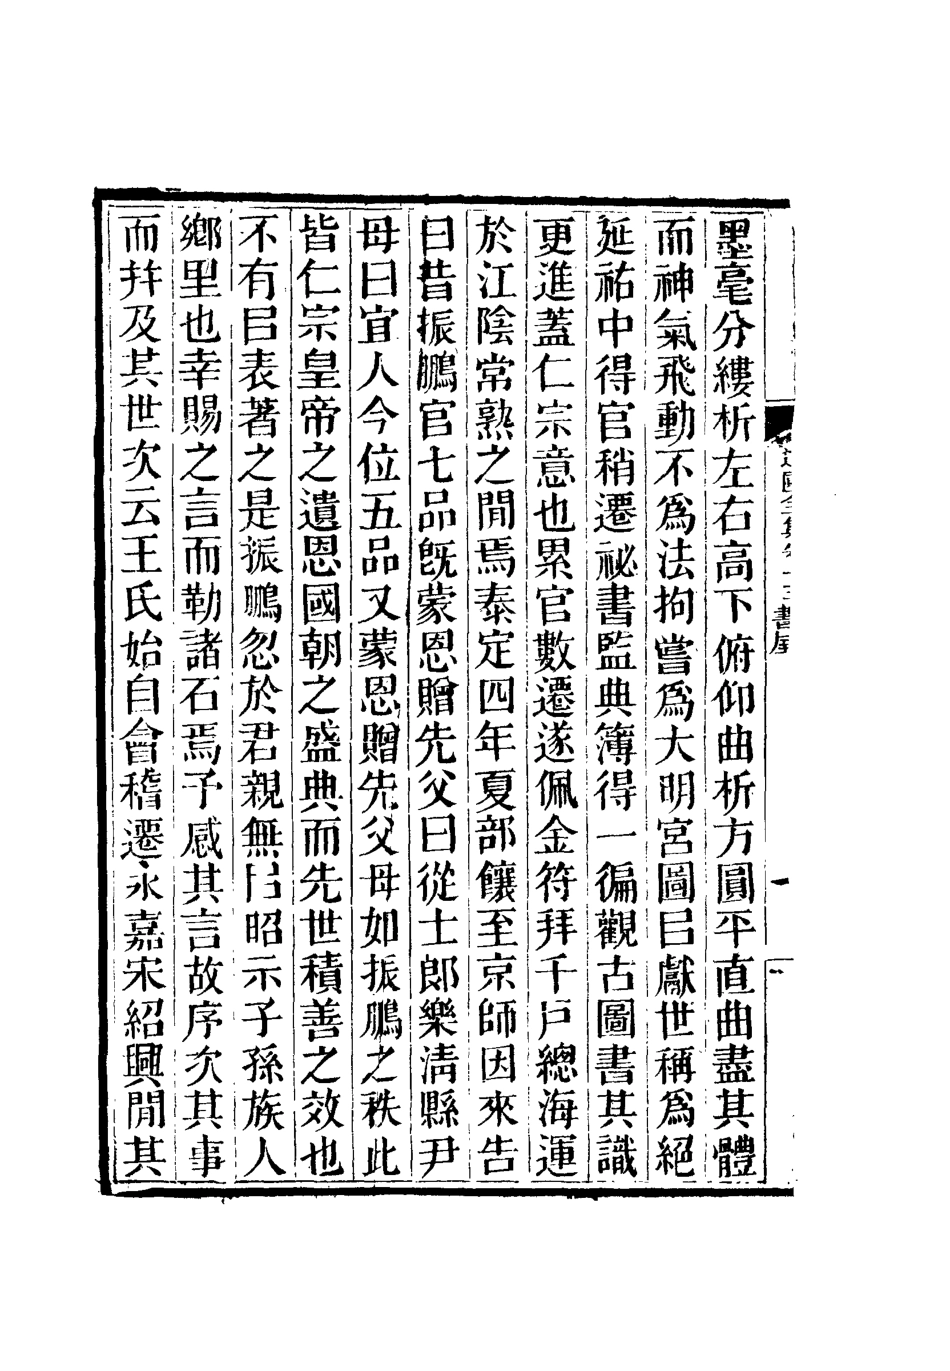 墨毫分縷析左右高下俯仰曲析方圓平直曲盡其體
而神氣飛動不爲法拘嘗爲大明宮圖㠯獻世稱爲絕
延祐中得官稍遷祕書監典簿得一徧觀古圖書其識
更進蓋仁宗意也累官數遷遂佩金符拜千戸總海運
於江陰常熟之閒焉泰定四年夏部饟至京師因來告
曰昔振鵬官七品旣蒙恩贈先父曰從士郎樂淸縣尹
母曰宜人今位五品又蒙恩贈先父母如振鵬之秩此
皆仁宗皇帝之遺恩國朝之盛典而先世積善之效也
不有㠯表著之是振鵬忽於君親無㠯昭示子孫族人
鄉里也幸賜之言而勒諸石焉予感其言故序次其事
而幷及其世次云王氏始自會稽遷永嘉宋紹興閒其